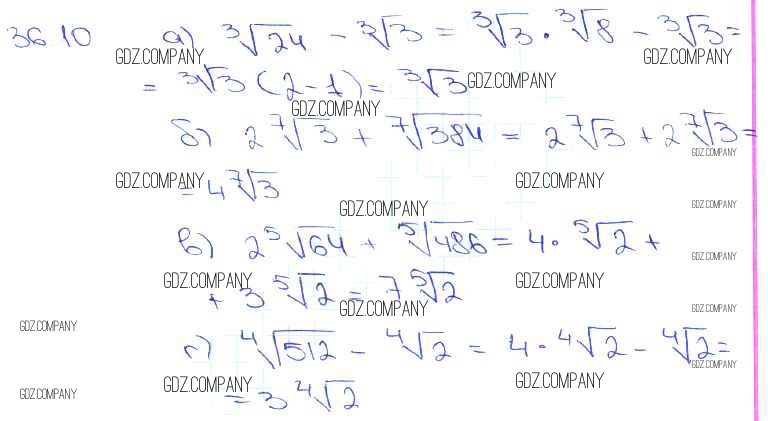 36 10 а) ∛24 - ∛3 = ∛3 · ∛8 - ∛3 =
GDZ.COMPANY GDZ.COMPANY
= ∛3 (2-1) = ∛3 GDZ.COMPANY
GDZ.COMPANY
б) 2 ⁷√3 + ⁷√384 = 2 ⁷√3 + 2 ⁷√3 =
GDZ.COMPANY
GDZ.COMPANY = 4 ⁷√3 GDZ.COMPANY
GDZ.COMPANY GDZ.COMPANY
в) 2 ⁵√64 + ⁵√486 = 4 · ⁵√2 +
GDZ.COMPANY
GDZ.COMPANY GDZ.COMPANY
+ 3 ⁵√2 = 7 ⁵√2
GDZ.COMPANY GDZ.COMPANY
GDZ.COMPANY
г) ⁴√512 - ⁴√2 = 4 · ⁴√2 - ⁴√2 =
GDZ.COMPANY
GDZ.COMPANY GDZ.COMPANY GDZ.COMPANY GDZ.COMPANY
= 3 ⁴√2